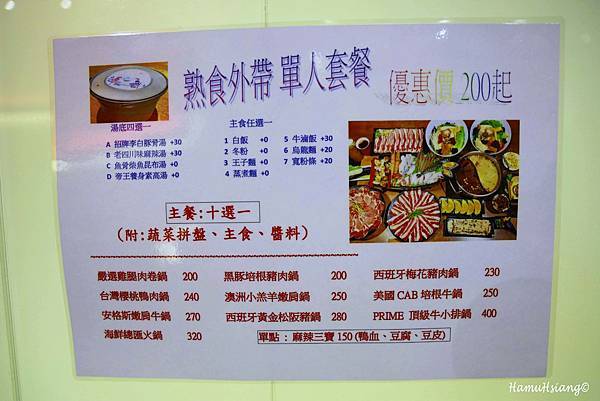 熟食外帶 單人套餐
優惠價 200起
湯底四選一
A 招牌李白豚骨湯 +30
B 老四川味麻辣湯 +30
C 魚骨柴魚昆布湯 +0
D 帝王養身素高湯 +0
主食任選一
1 白飯 +0
2 冬粉 +0
3 王子麵 +0
4 蒸煮麵 +0
5 牛滷飯 +30
6 烏龍麵 +20
7 寬粉條 +20
主餐:十選一
(附:蔬菜拼盤、主食、醬料)
嚴選雞腿肉卷鍋 200
黑豚培根豬肉鍋 200
西班牙梅花豬肉鍋 230
台灣櫻桃鴨肉鍋 240
澳洲小羔羊嫩肩鍋 250
美國 CAB 培根牛鍋 250
安格斯嫩肩牛鍋 270
西班牙黃金松阪豬鍋 280
PRIME 頂級牛小排鍋 400
海鮮總匯火鍋 320
單點 : 麻辣三寶 150 (鴨血、豆腐、豆皮)
HamuHsiang©